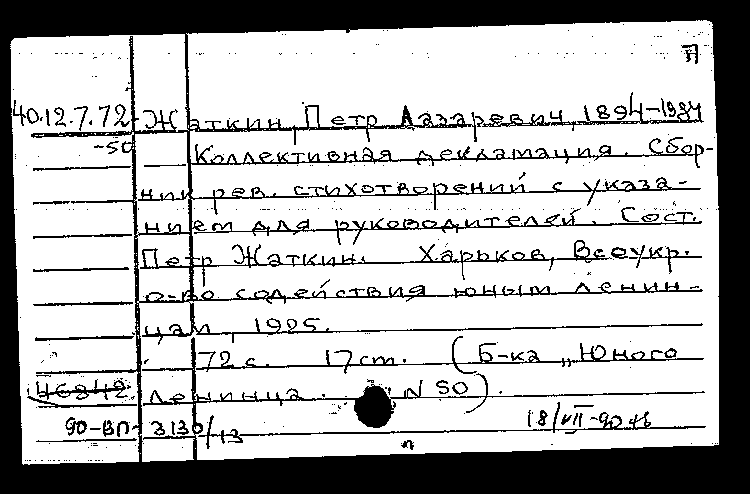 П
40.12.7.72 Жаткин, Петр Лазаревич, 1894-1984
-50 Коллективная декламация. Сбор-
ник рев. стихотворений с указа-
нием для руководителей. Сост.
Петр Жаткин. Харьков, Всеукр.
о-во содействия юным ленин-
цам, 1925.
72 с. 17 см. (Б-ка „Юного
46842 ленинца. N 50).
90-ВП-3130/13 18/VII-90
п